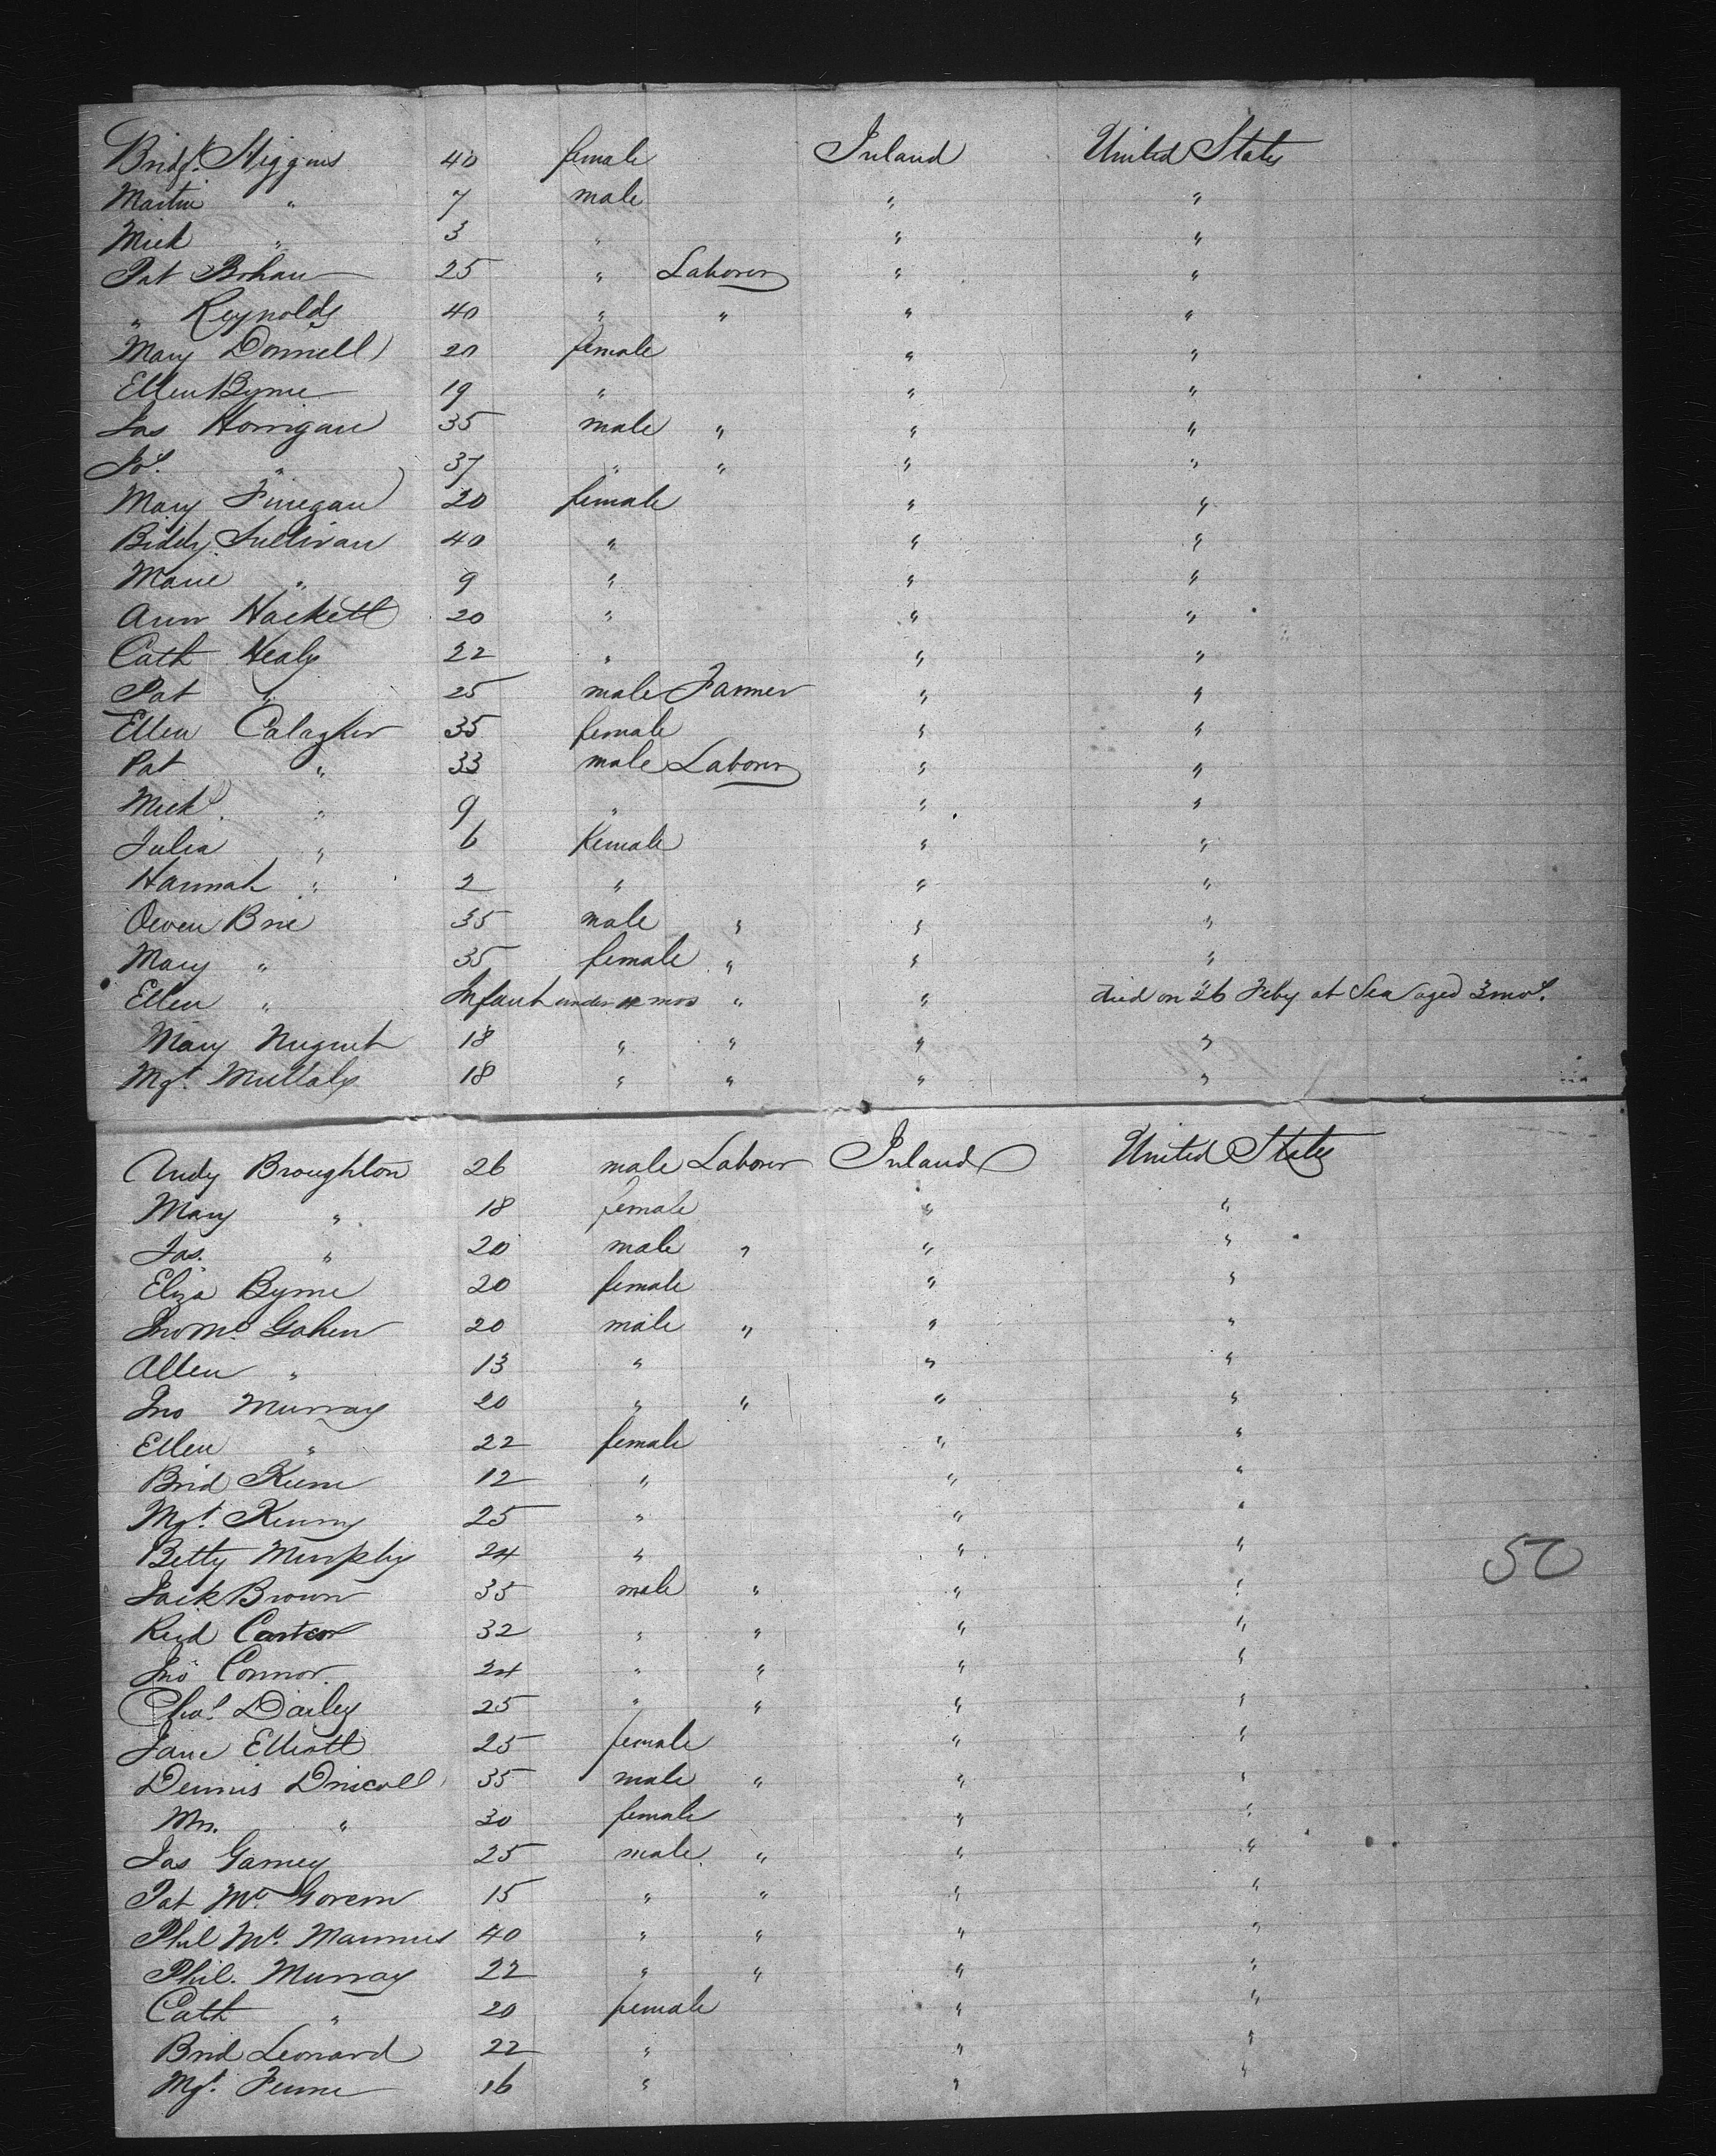 Bridgt. Higgins 40 female Ireland United States
Martin " 7 male " "
Mick " 3 " " "
Pat Bohan 25 " Laborer " "
" Reynolds 40 " " " "
Mary Donnell 20 female " "
Ellen Byrne 19 " " "
Jas Horrigan 35 male " " "
" 37 " " " "
Mary Finegan 20 female " "
Biddy Sullivan 40 " " "
" 9 " " "
Ann Hackett 20 " " "
Cath Healy 22 " " "
Pat " 25 male Farmer " "
Ellen Calagher 35 female " "
Pat " 33 male Laborer " "
Mick. " 9 " " "
Julia " 6 Female " "
Hannah " 2 " " "
Owen Brie 35 male " " "
Mary " 35 female " " "
Ellen " Infant under mos " " died on 26 Feby at Sea aged 3 mos.
Mary Nugent 18 " " " "
Mgt. Mullaly 18 " " " "
Andy Broughton 26 male Laborer Ireland United States
Mary " 18 female " "
Jas. " 20 male " " "
Eliza Byrne 20 female " "
Jno Mc Gahen 20 male " " "
Allen " 13 " " "
Jno Murray 20 " " " "
Ellen " 22 female " "
Brid 12 " " "
Mgt. Kenny 25 " " "
Betty Murphy 24 " " "
50
Jack Brown 35 male " " "
Reid Carter 32 " " " "
Jno Connor 24 " " " "
Chas. Dailey 25 " " " "
Jane Elliott 25 female " "
Dennis Driscoll 35 male " " "
Mrs. " 30 female " "
Jas Garney 25 male " " "
Pat Mc Govern 15 " " " "
Phil Mc Mannus 40 " " " "
Phil. Murray 22 " " " "
Cath " 20 female " "
Brid Leonard 22 " " "
Mgt. 16 " " "